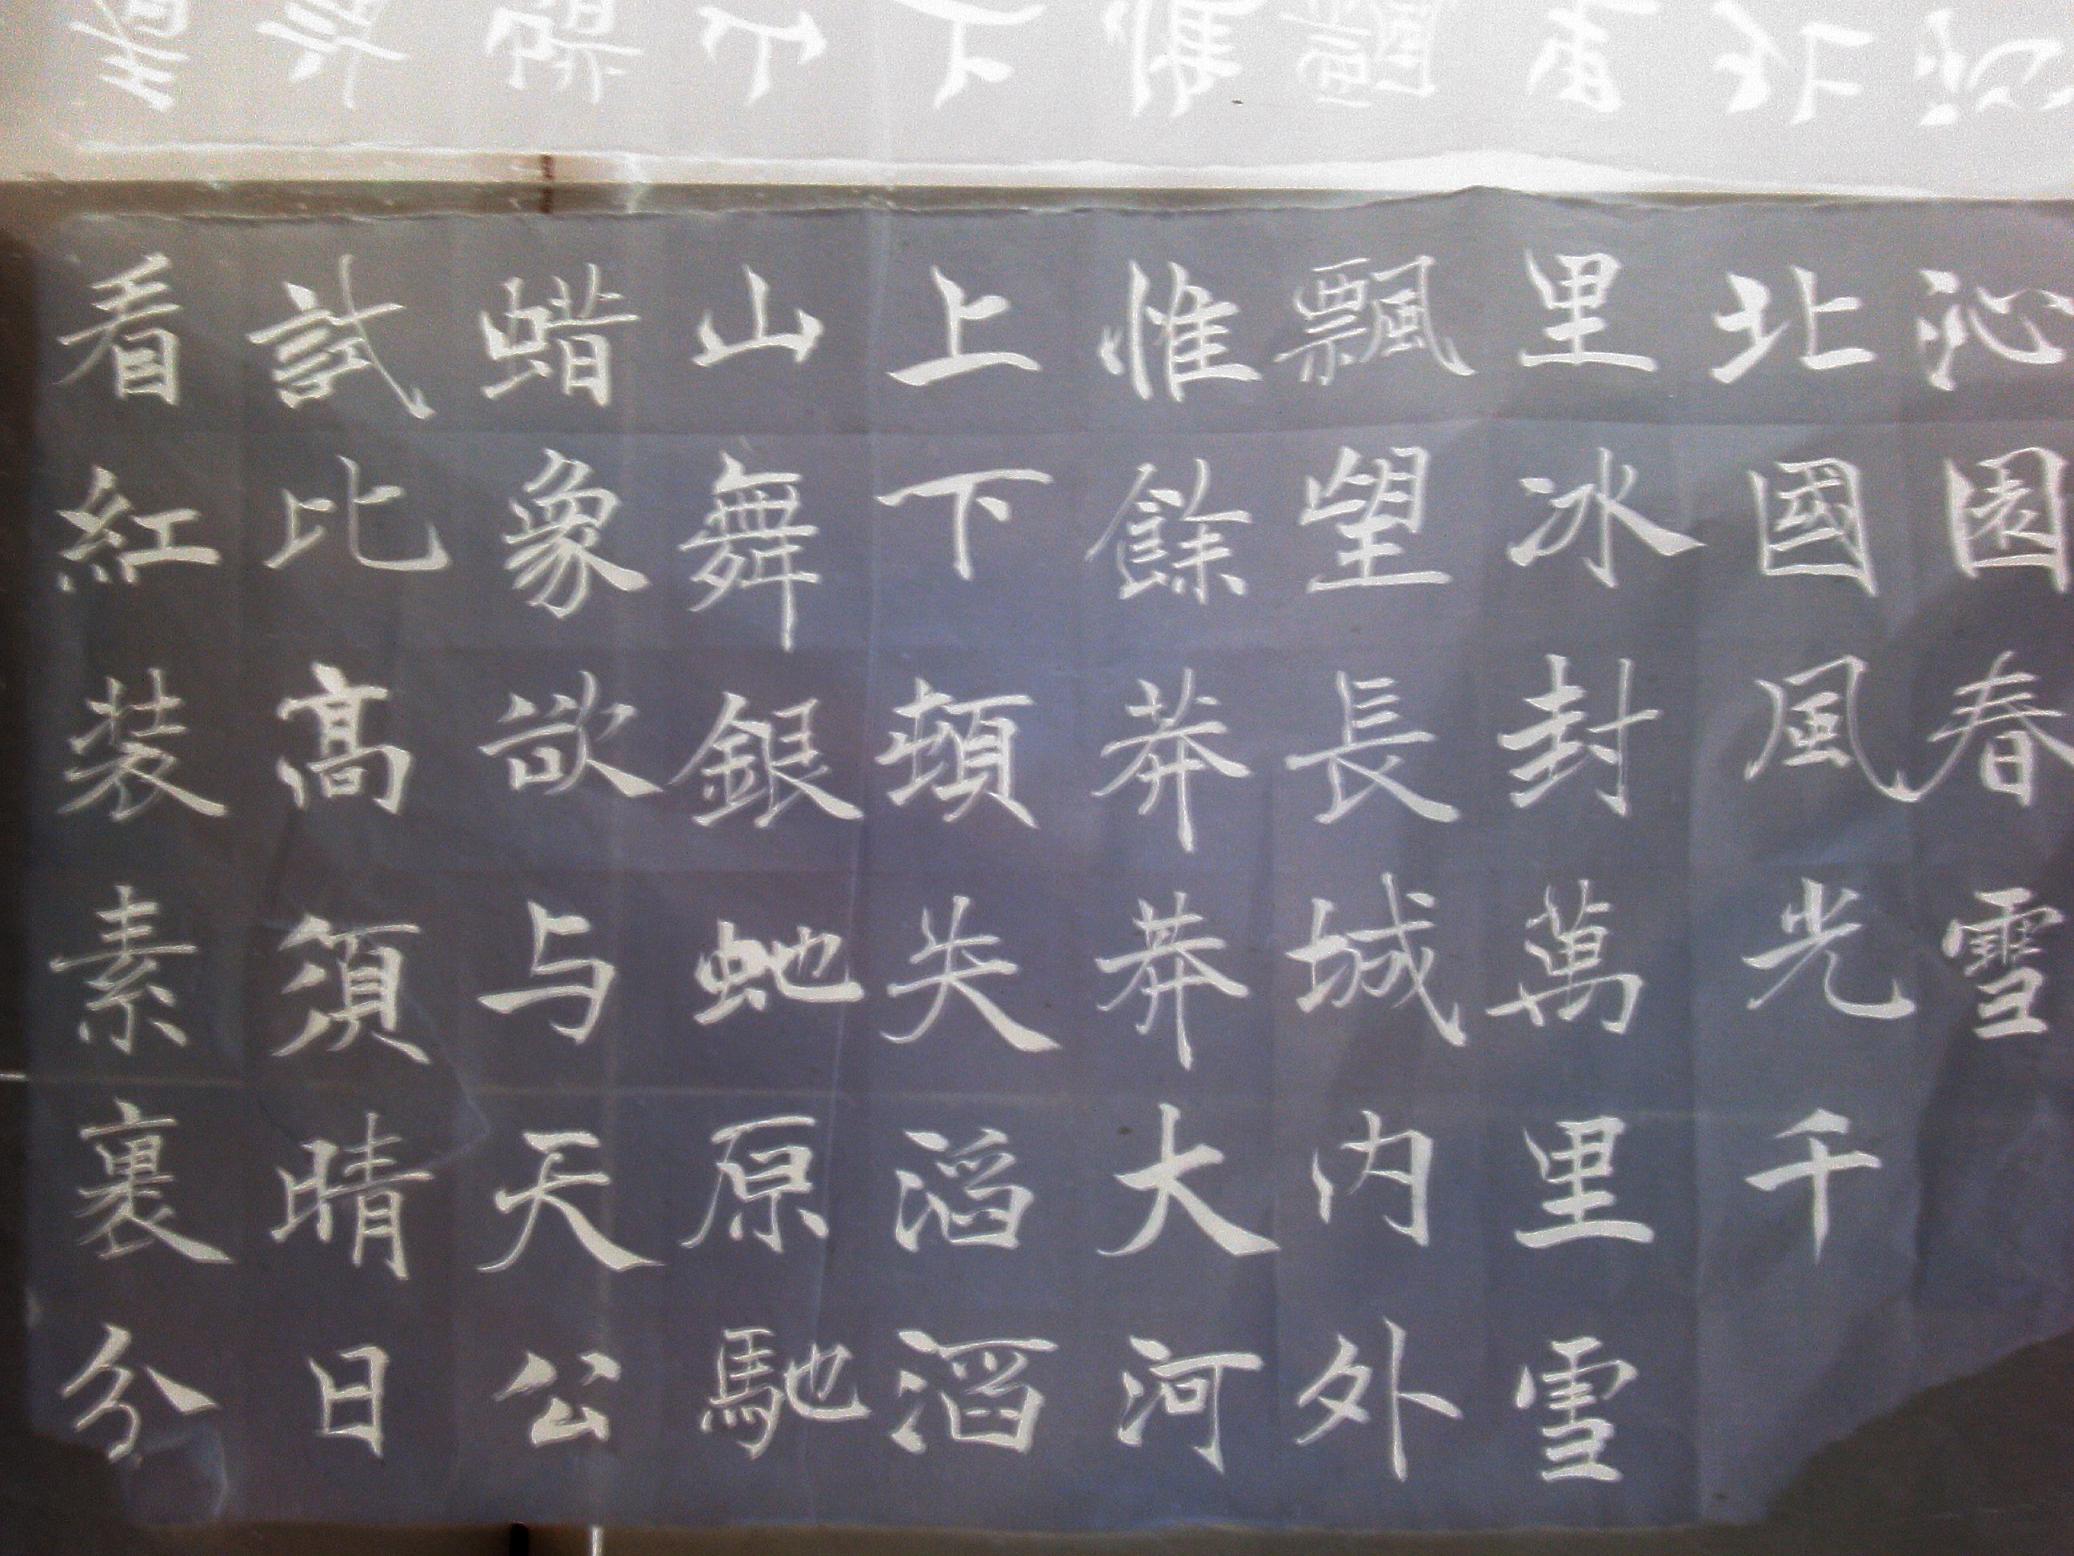 沁园春雪
北國風光千
里冰封萬里雪
飄望長城内外
惟餘莽莽大河
上下頓失滔滔
山舞銀虵原馳
蜡象欲与天公
試比高須晴日
看紅装素裹分